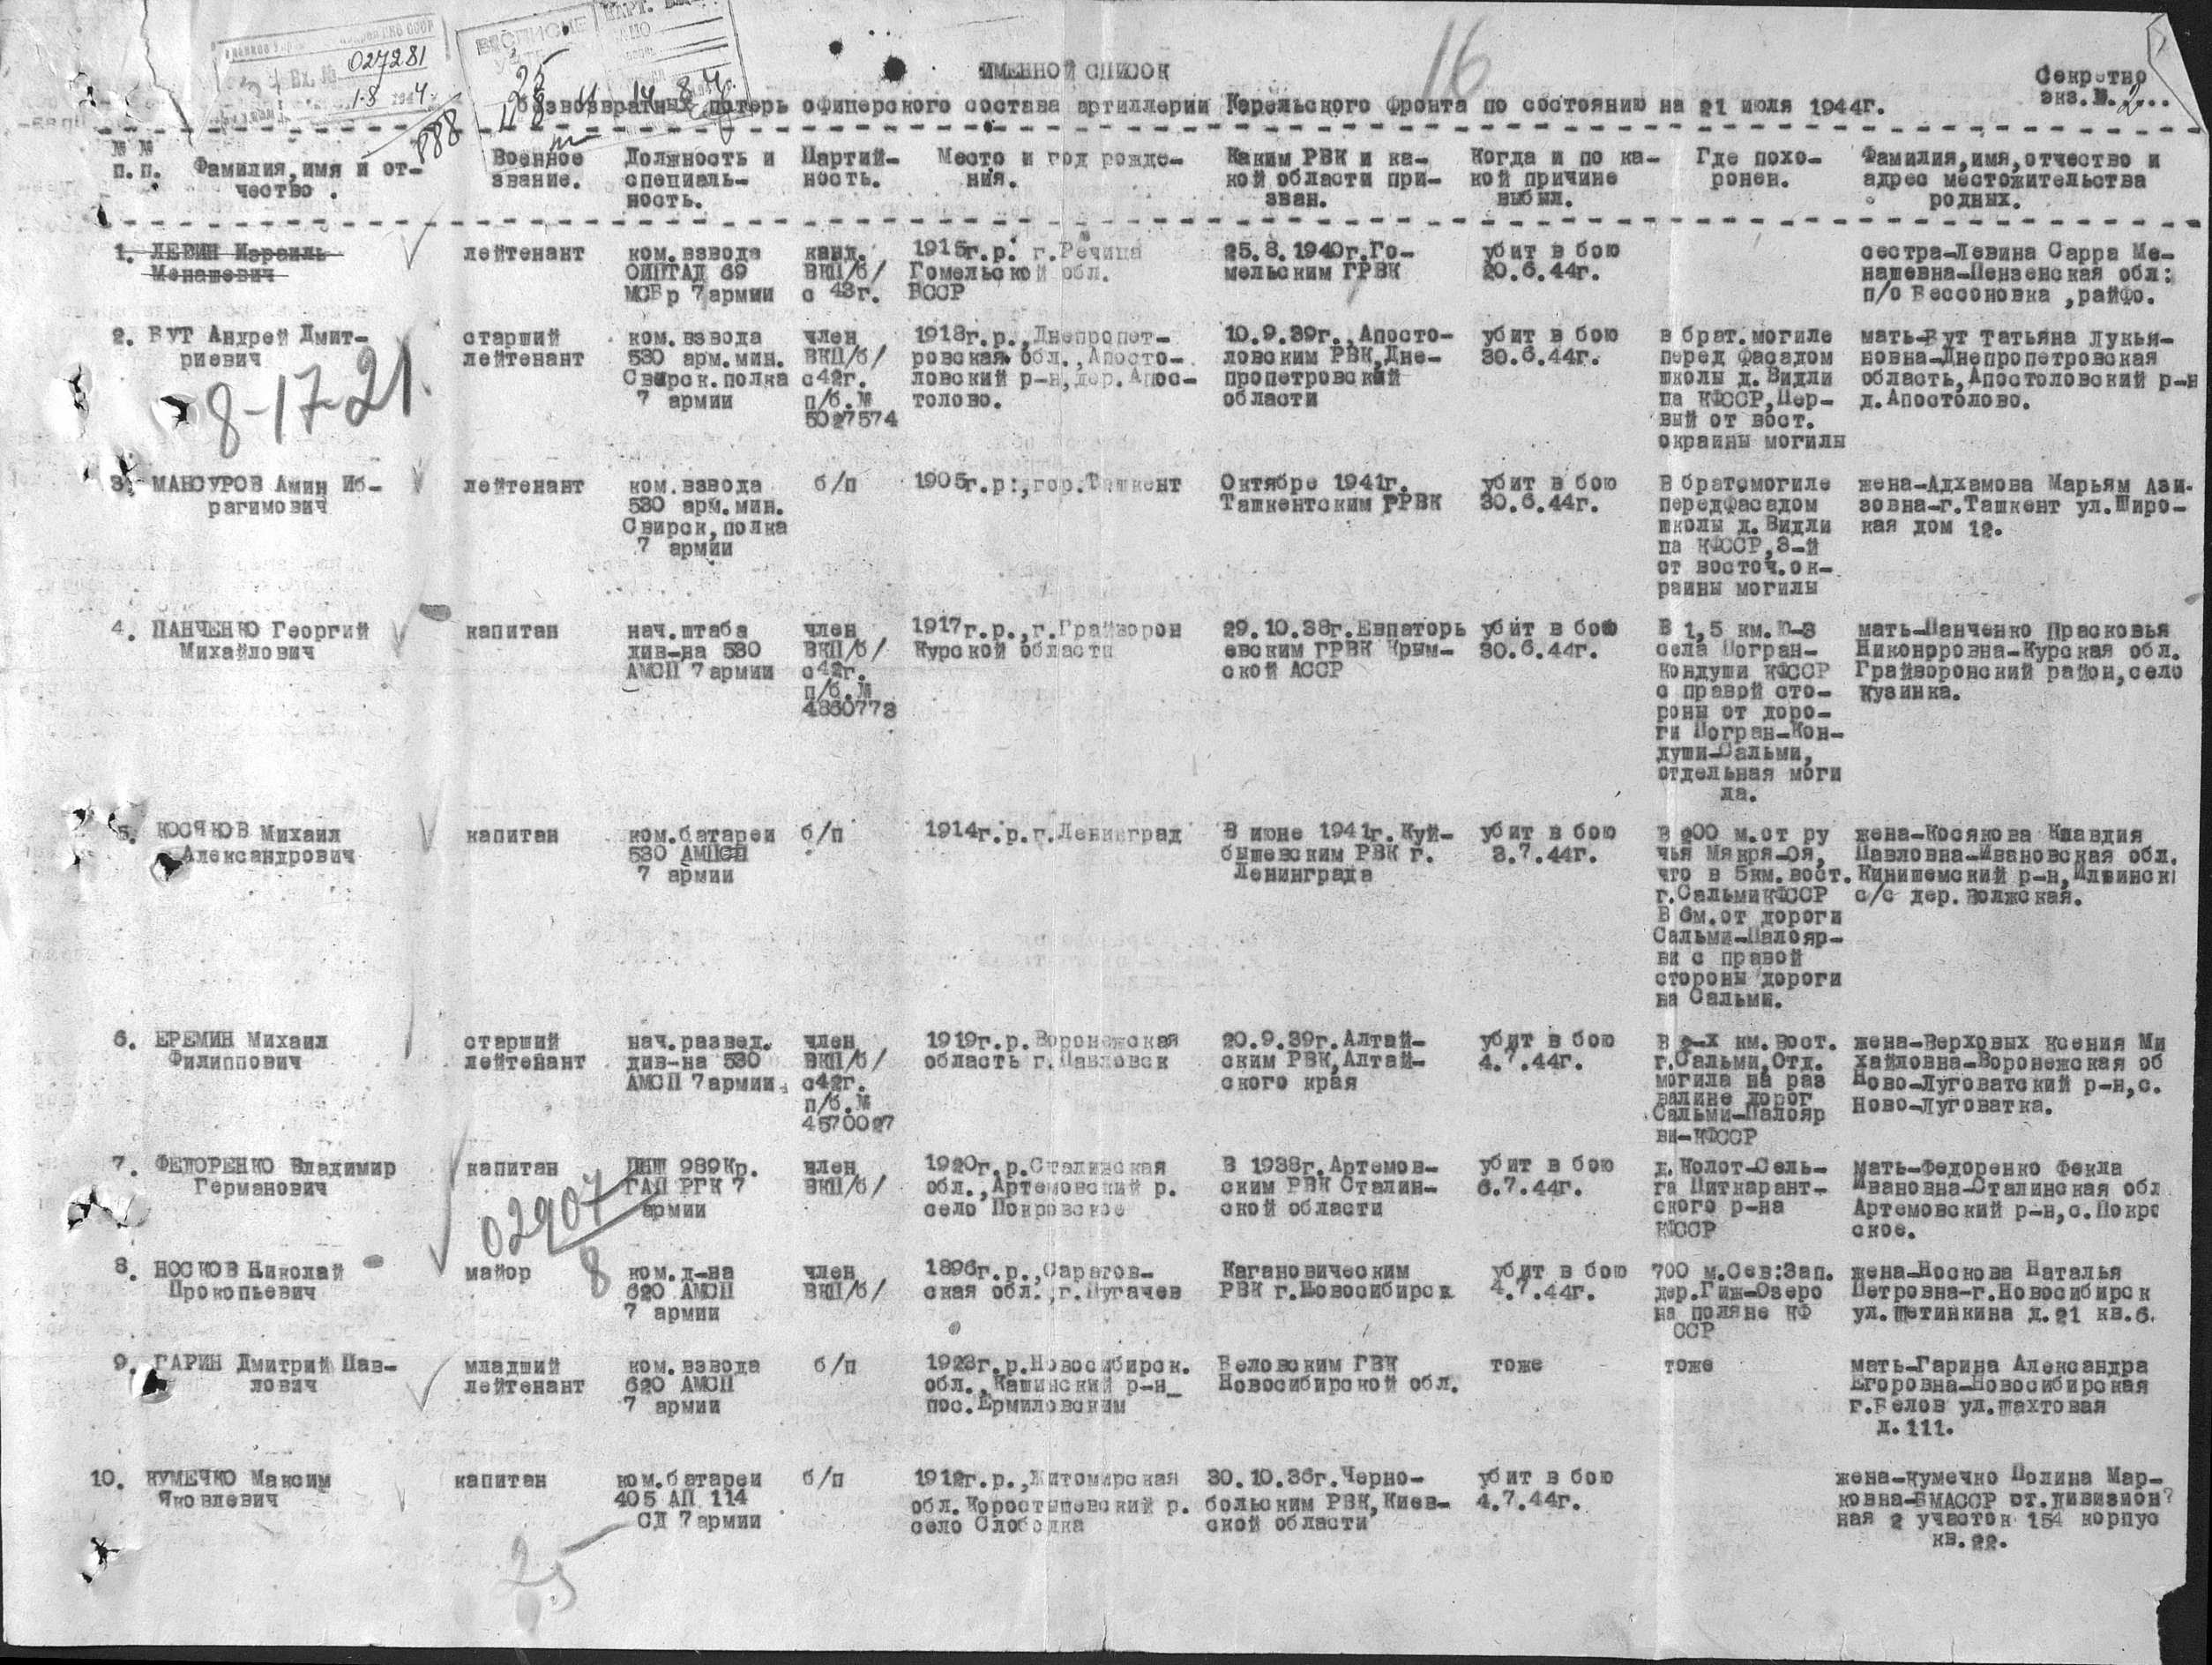 027281
Вх. №
1-8 1944 г.
888
25
16
ИМЕННОЙ СПИСОК
Секретно
экз.№.2...
безвозвратных потерь офицерского состава артиллерии Карельского фронта по состоянию на 21 июля 1944г.
№ №
п.п. Фамилия,имя и от-
чество .
Военное
звание.
Должность и
специаль-
ность.
Партий-
ность.
Место и год рожде-
ния.
Каким РВК и ка-
кой области при-
зван.
Когда и по ка-
кой причине
выбыл.
Где похо-
ронен.
Фамилия,имя,отчество и
адрес местожительства
родных.
1. ЛЕВИН Израиль
Менашевич
лейтенант
ком.взвода
ОИПТАД 69
МСБр 7армии
канд.
ВКП/б/
с 43г.
1915г.р. г.Речица
Гомельской обл.
БССР
25.8.1940г.Го-
мельским ГРВК
убит в бою
20.6.44г.
сестра-Левина Сарра Ме-
нашевна-Пензенская обл:
п/о Бессоновка ,райфо.
2. БУТ Андрей Дмит-
риевич
8-17-21.
старший
лейтенант
ком.взвода
530 арм.мин.
Свирск.полка
7 армии
член
ВКП/б/
с42г.
п/б.№
5027574
1918г.р.,Днепропет-
ровская обл.,Апосто-
ловский р-н,дер.Апос-
толово.
10.9.39г.,Апосто-
ловским РВК,Дне-
пропетровской
области
убит в бою
30.6.44г.
в брат.могиле
перед фасадом
школы д.Видли
ца КФССР,Пер-
вый от вост.
окраины могилы
мать-Бут Татьяна Лукья-
новна-Днепропетровская
область,Апостоловский р-н
д.Апостолово.
3. МАНСУРОВ Амин Иб-
рагимович
лейтенант
ком.взвода
530 арм.мин.
Свирск,полка
7 армии
б/п
1905г.р.,гор.Ташкент
Октябре 1941г.
Ташкентским РРВК
убит в бою
30.6.44г.
В братомогиле
передфасадом
школы д.Видли
ца КФССР,3-й
от восточ.ок-
раины могилы
жена-Адхамова Марьям Ази-
зовна-г.Ташкент ул.Широ-
кая дом 12.
4. ПАНЧЕНКО Георгий
Михайлович
капитан
нач.штаба
див-на 530
АМСП 7армии
член
ВКП/б/
с42г.
п/б.№
4360773
1917г.р.,г.Грайворон
Курской области
29.10.38г.Евпаторь
евским ГРВК Крым-
ской АССР
убит в бою
30.6.44г.
В 1,5 км.Ю-З
села Погран-
Кондуши КФССР
с правой сто-
роны от доро-
ги Погран-Кон-
души-Сальми,
отдельная моги
ла.
мать-Панченко Прасковья
Никоноровна-Курская обл.
Грайворонский район,село
Кузинка.
5. КОСЯКОВ Михаил
Александрович
капитан
ком.батареи
530 АМПСП
7 армии
б/п
1914г.р.г.Ленинград
В июне 1941г.Куй-
бышевским РВК г.
Ленинграда
убит в бою
3.7.44г.
В 200 м.от ру
чья Мякря-Оя,
что в 5км.вост.
г.СальмиКФССР
В 6м.от дороги
Сальми-Палояр-
ви с правой
стороны дороги
на Сальми.
жена-Косякова Клавдия
Павловна-Ивановская обл.
Кинишемский р-н,Илвинск
с/с дер.Волжская.
6. ЕРЕМИН Михаил
Филиппович
старший
лейтенант
нач.развед.
див-на 530
АМСП 7армии.
член
ВКП/б/
с42г.
п/б.№
4570027
1919г.р.Воронежская
область г.Павловск
20.9.39г.Алтай-
ским РВК,Алтай-
ского края
убит в бою
4.7.44г.
В 2-х км.вост.
г.Сальми,Отд.
могила на раз
валине дорог
Сальми-Палояр
ви-КФССР
жена-Верховых Ксения Ми
хайловна-Воронежская об
Ново-Луговатский р-н,с.
Ново-Луговатка.
7. ФЕДОРЕНКО Владимир
Германович
капитан
ПНШ 989Кр.
ГАП РГК 7
армии
02907
8
член
ВКП/б/
1920г.р.Сталинская
обл.,Артемовский р.
село Покровское
В 1938г.Артемов-
ским РВК Сталин-
ской области
убит в бою
6.7.44г.
д.Колот-Сель-
га Питкарант-
ского р-на
КФССР
мать-Федоренко Фекла
Ивановна-Сталинская обл
Артемовский р-н,с.Покро
ское.
8. НОСКОВ Николай
Прокопьевич
майор
ком.д-на
620 АМСП
7 армии
член
ВКП/б/
1896г.р.,Саратов-
ская обл.,г.Пугачев
Кагановическим
РВК г.Новосибирск
убит в бою
4.7.44г.
700 м.Сев:Зап.
дер.Гиж-Озеро
на поляне КФ
ССР
жена-Носкова Наталья
Петровна-г.Новосибирск
ул.Щетинкина д.21 кв.6.
9. ГАРИН Дмитрий Пав-
лович
младший
лейтенант
ком.взвода
620 АМСП
7 армии
б/п
1923г.р.Новосибирск.
обл.,Кашинский р-н_
пос.Ермиловским
Беловским ГВК
Новосибирской обл.
тоже
тоже
мать-Гарина Александра
Егоровна-Новосибирская
г.Белов ул.Шахтовая
д.111.
10. КУМЕЧКО Максим
Яковлевич
капитан
ком.батареи
405 АП 114
СД 7армии
б/п
1912г.р.,Житомирская
обл.Коростышевский р.
село Слободка
30.10.36г.Черно-
больским РВК,Киев-
ской области
убит в бою
4.7.44г.
жена-Кумечко Полина Мар-
ковна-БМАССР ст.Дивизион
ная 2 участок 154 корпус
кв.22.
25